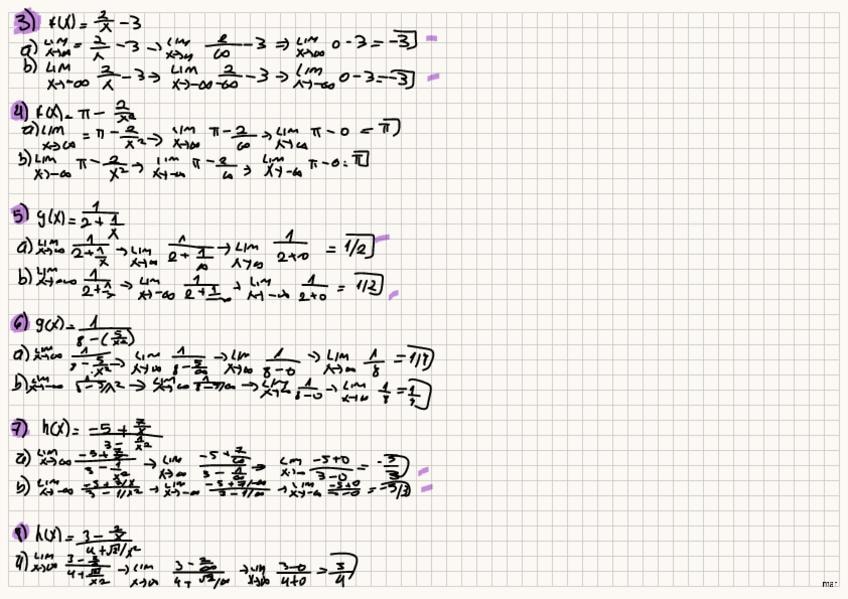 3) f(x) = 2/x - 3
a) Lim x→∞ = 2/x - 3 → Lim x→∞ 2/∞ - 3 ⇒ Lim x→∞ 0 - 3 = -3
b) Lim x→-∞ 2/x - 3 → Lim x→-∞ 2/-∞ - 3 → Lim x→-∞ 0 - 3 = -3
4) f(x) = π - 2/x²
a) Lim x→∞ = π - 2/x² → Lim x→∞ π - 2/∞ → Lim x→∞ π - 0 = π
b) Lim x→-∞ π - 2/x² → Lim x→-∞ π - 2/∞ → Lim x→-∞ π - 0 = π
5) g(x) = 1/(2 + 1/x)
a) Lim x→∞ 1/(2 + 1/x) → Lim x→∞ 1/(2 + 1/∞) → Lim x→∞ 1/(2+0) = 1/2
b) Lim x→-∞ 1/(2 + 1/x) → Lim x→-∞ 1/(2 + 1/-∞) → Lim x→-∞ 1/(2+0) = 1/2
6) g(x) = 1/(8 - (5/x²))
a) Lim x→∞ 1/(8 - 5/x²) → Lim x→∞ 1/(8 - 5/∞) → Lim x→∞ 1/(8-0) → Lim x→∞ 1/8 = 1/8
b) Lim x→-∞ → Lim x→-∞ → Lim 1/(8-0) → Lim x→-∞ 1/8 =
7) h(x) = (-5 + 7/x)/(3 - 1/x²)
a) Lim x→∞ (-5 + 7/x)/(3 - 1/x²) → Lim x→∞ (-5 + 7/∞)/(3 - 1/∞) → Lim x→∞ (-5+0)/(3-0) = -5/3
b) Lim x→-∞ (-5 + 7/x)/(3 - 1/x²) → Lim x→-∞ (-5 + 7/-∞)/(3 - 1/∞) → Lim x→-∞ = -5/3
h(x) = (3 - 2/x)/(4 + √2/x²)
a) Lim x→∞ (3 - 2/x)/(4 + √2/x²) → Lim x→∞ (3 - 2/∞)/(4 + √2/∞) → Lim x→∞ (3-0)/(4+0) = 3/4
mar